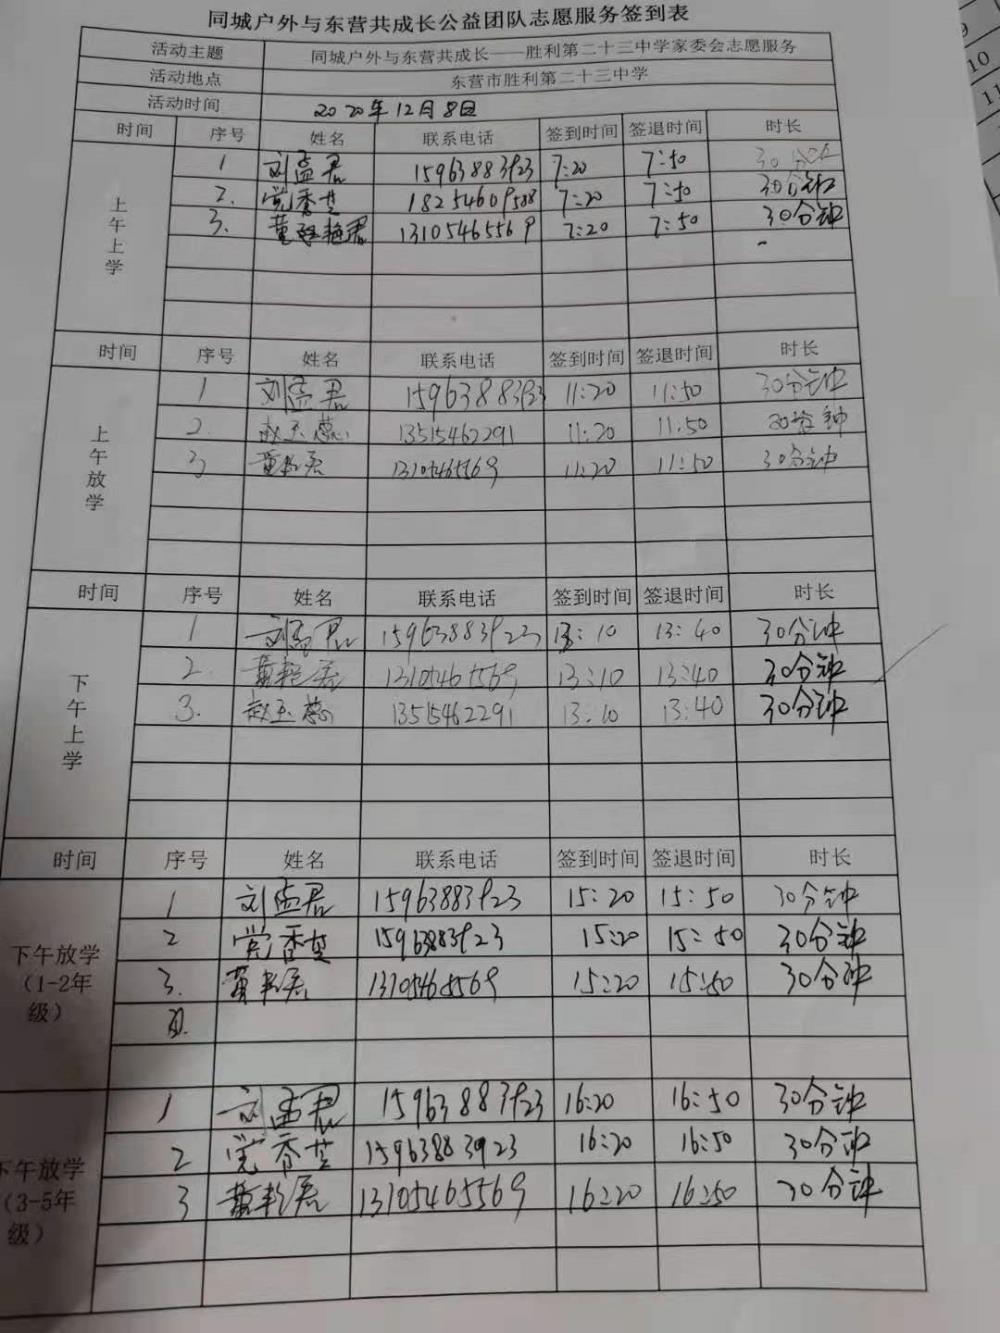 同城户外与东营共成长公益团队志愿服务签到表
活动主题 同城户外与东营共成长——胜利第二十三中学家委会志愿服务
活动地点 东营市胜利第二十三中学
活动时间 2020年12月8日
时间 序号 姓名 联系电话 签到时间 签退时间 时长
上午上学
1 刘孟君 15963883923 7:20 7:50 30分钟
2. 党香芝 18254609588 7:20 7:50 30分钟
3. 董艳君 13105465569 7:20 7:50 30分钟
时间 序号 姓名 联系电话 签到时间 签退时间 时长
上午放学
1 刘孟君 15963883923 11:20 11:50 30分钟
2. 赵玉蕊 13515462291 11:20 11:50 30分钟
3 董艳君 13105465569 11:20 11:50 30分钟
时间 序号 姓名 联系电话 签到时间 签退时间 时长
下午上学
1 刘孟君 15963883923 13:10 13:40 30分钟
2. 董艳君 13105465569 13:10 13:40 30分钟
3. 赵玉蕊 13515462291 13:10 13:40 30分钟
时间 序号 姓名 联系电话 签到时间 签退时间 时长
下午放学
(1-2年
级)
1 刘孟君 15963883923 15:20 15:50 30分钟
2 党香芝 15963883923 15:20 15:50 30分钟
3. 董艳君 13105465569 15:20 15:50 30分钟
下午放学
(3-5年
级)
1 刘孟君 15963883923 16:20 16:50 30分钟
2 党香芝 15963883923 16:20 16:50 30分钟
3 董艳君 13105465569 16:20 16:50 30分钟
9
10
11